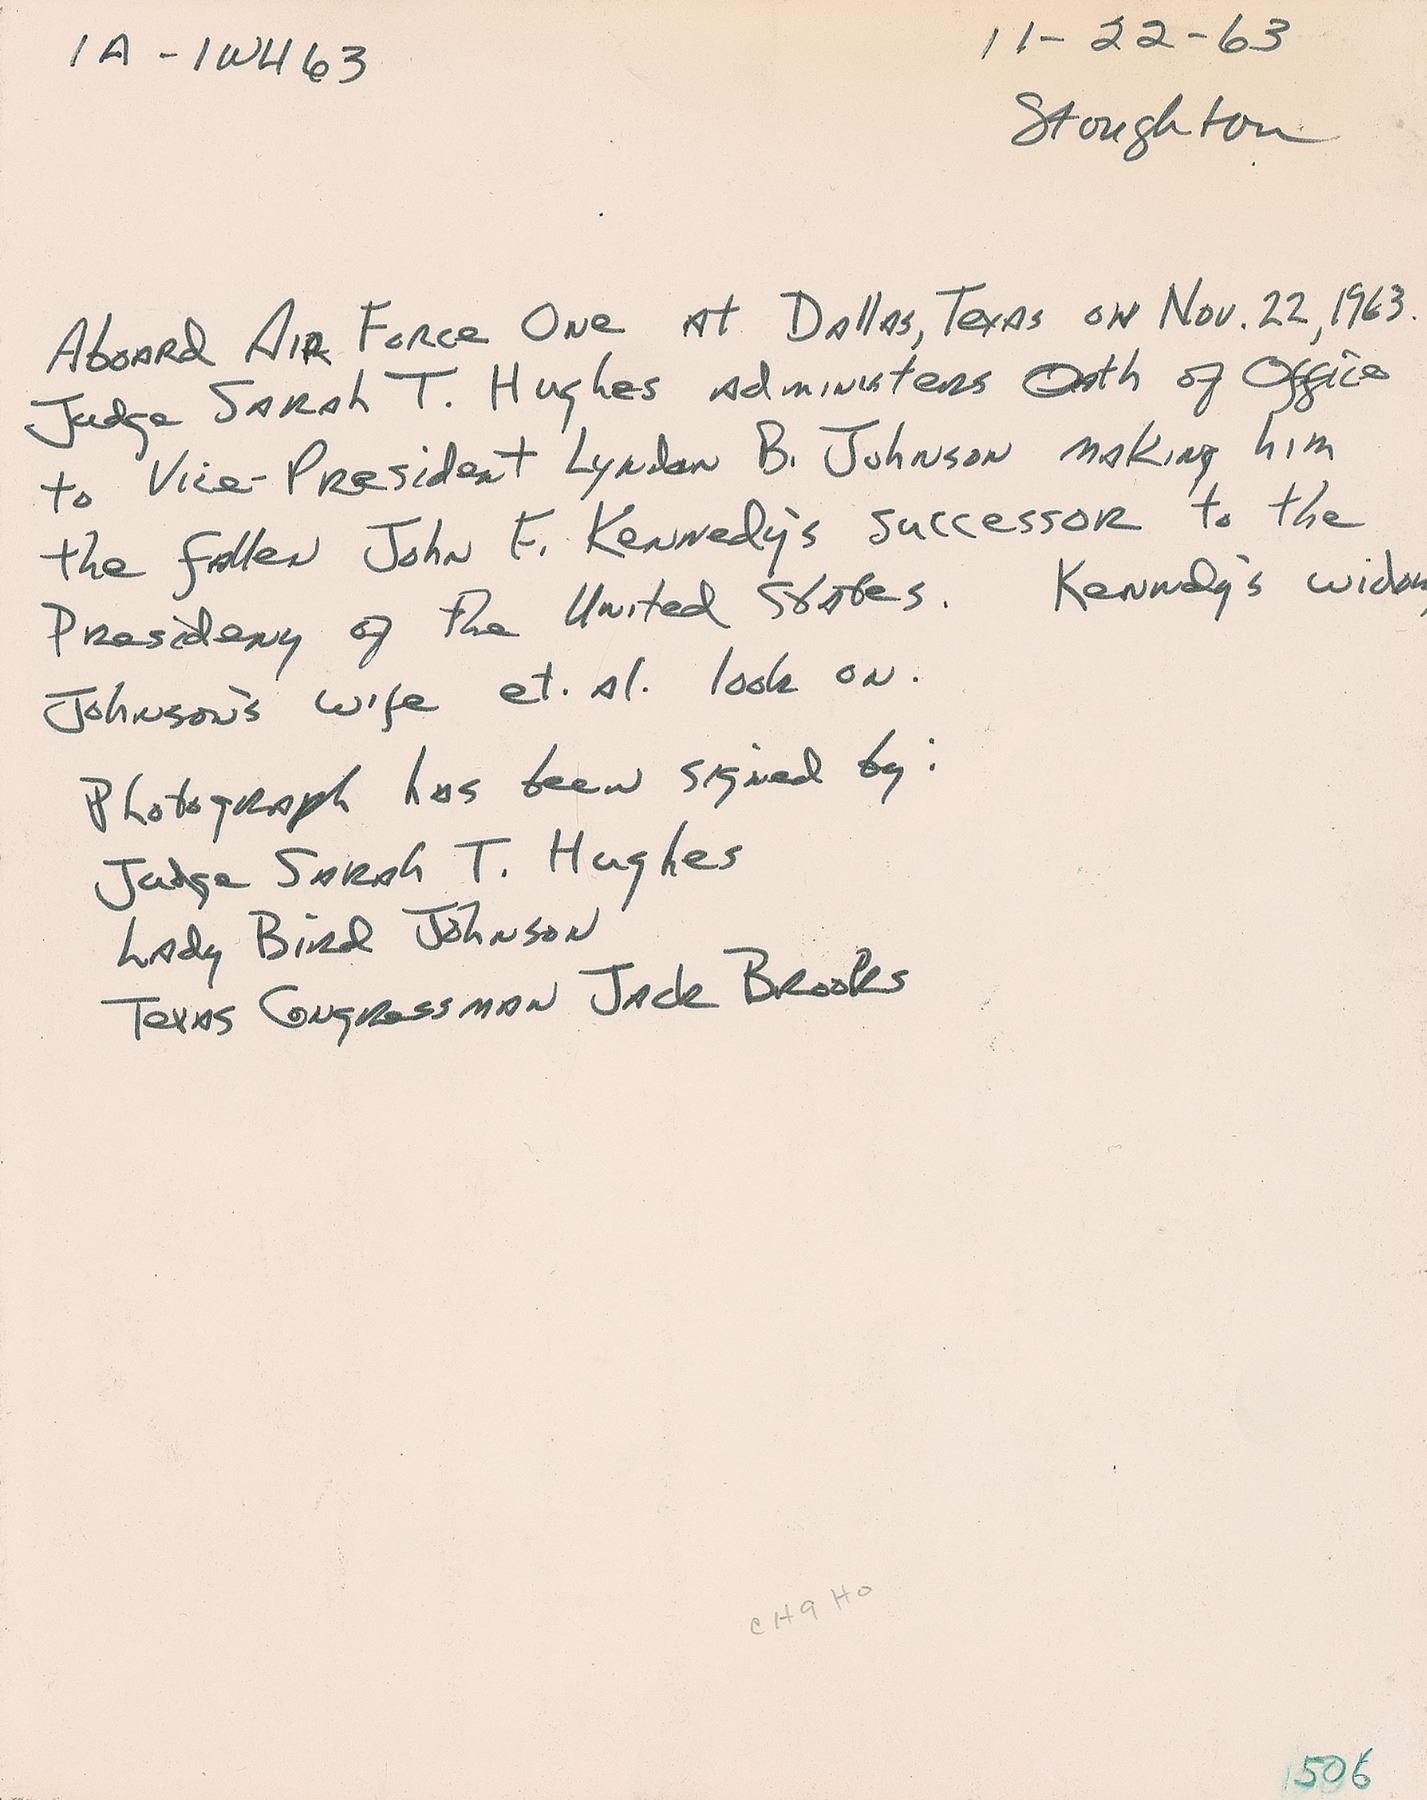 1A-1W463
11-22-63
Stoughton
Aboard Air Force One at Dallas, Texas on Nov. 22, 1963.
Judge Sarah T. Hughes administers Oath of Office
to Vice-President Lyndon B. Johnson making him
the fallen John F. Kennedy's successor to the
Presideny of the United States. Kennedy's widow,
Johnson's wife et. al. look on.
Photograph has been signed by:
Judge Sarah T. Hughes
Lady Bird Johnson
Texas Congressman Jack Brooks
CH9HO
1506